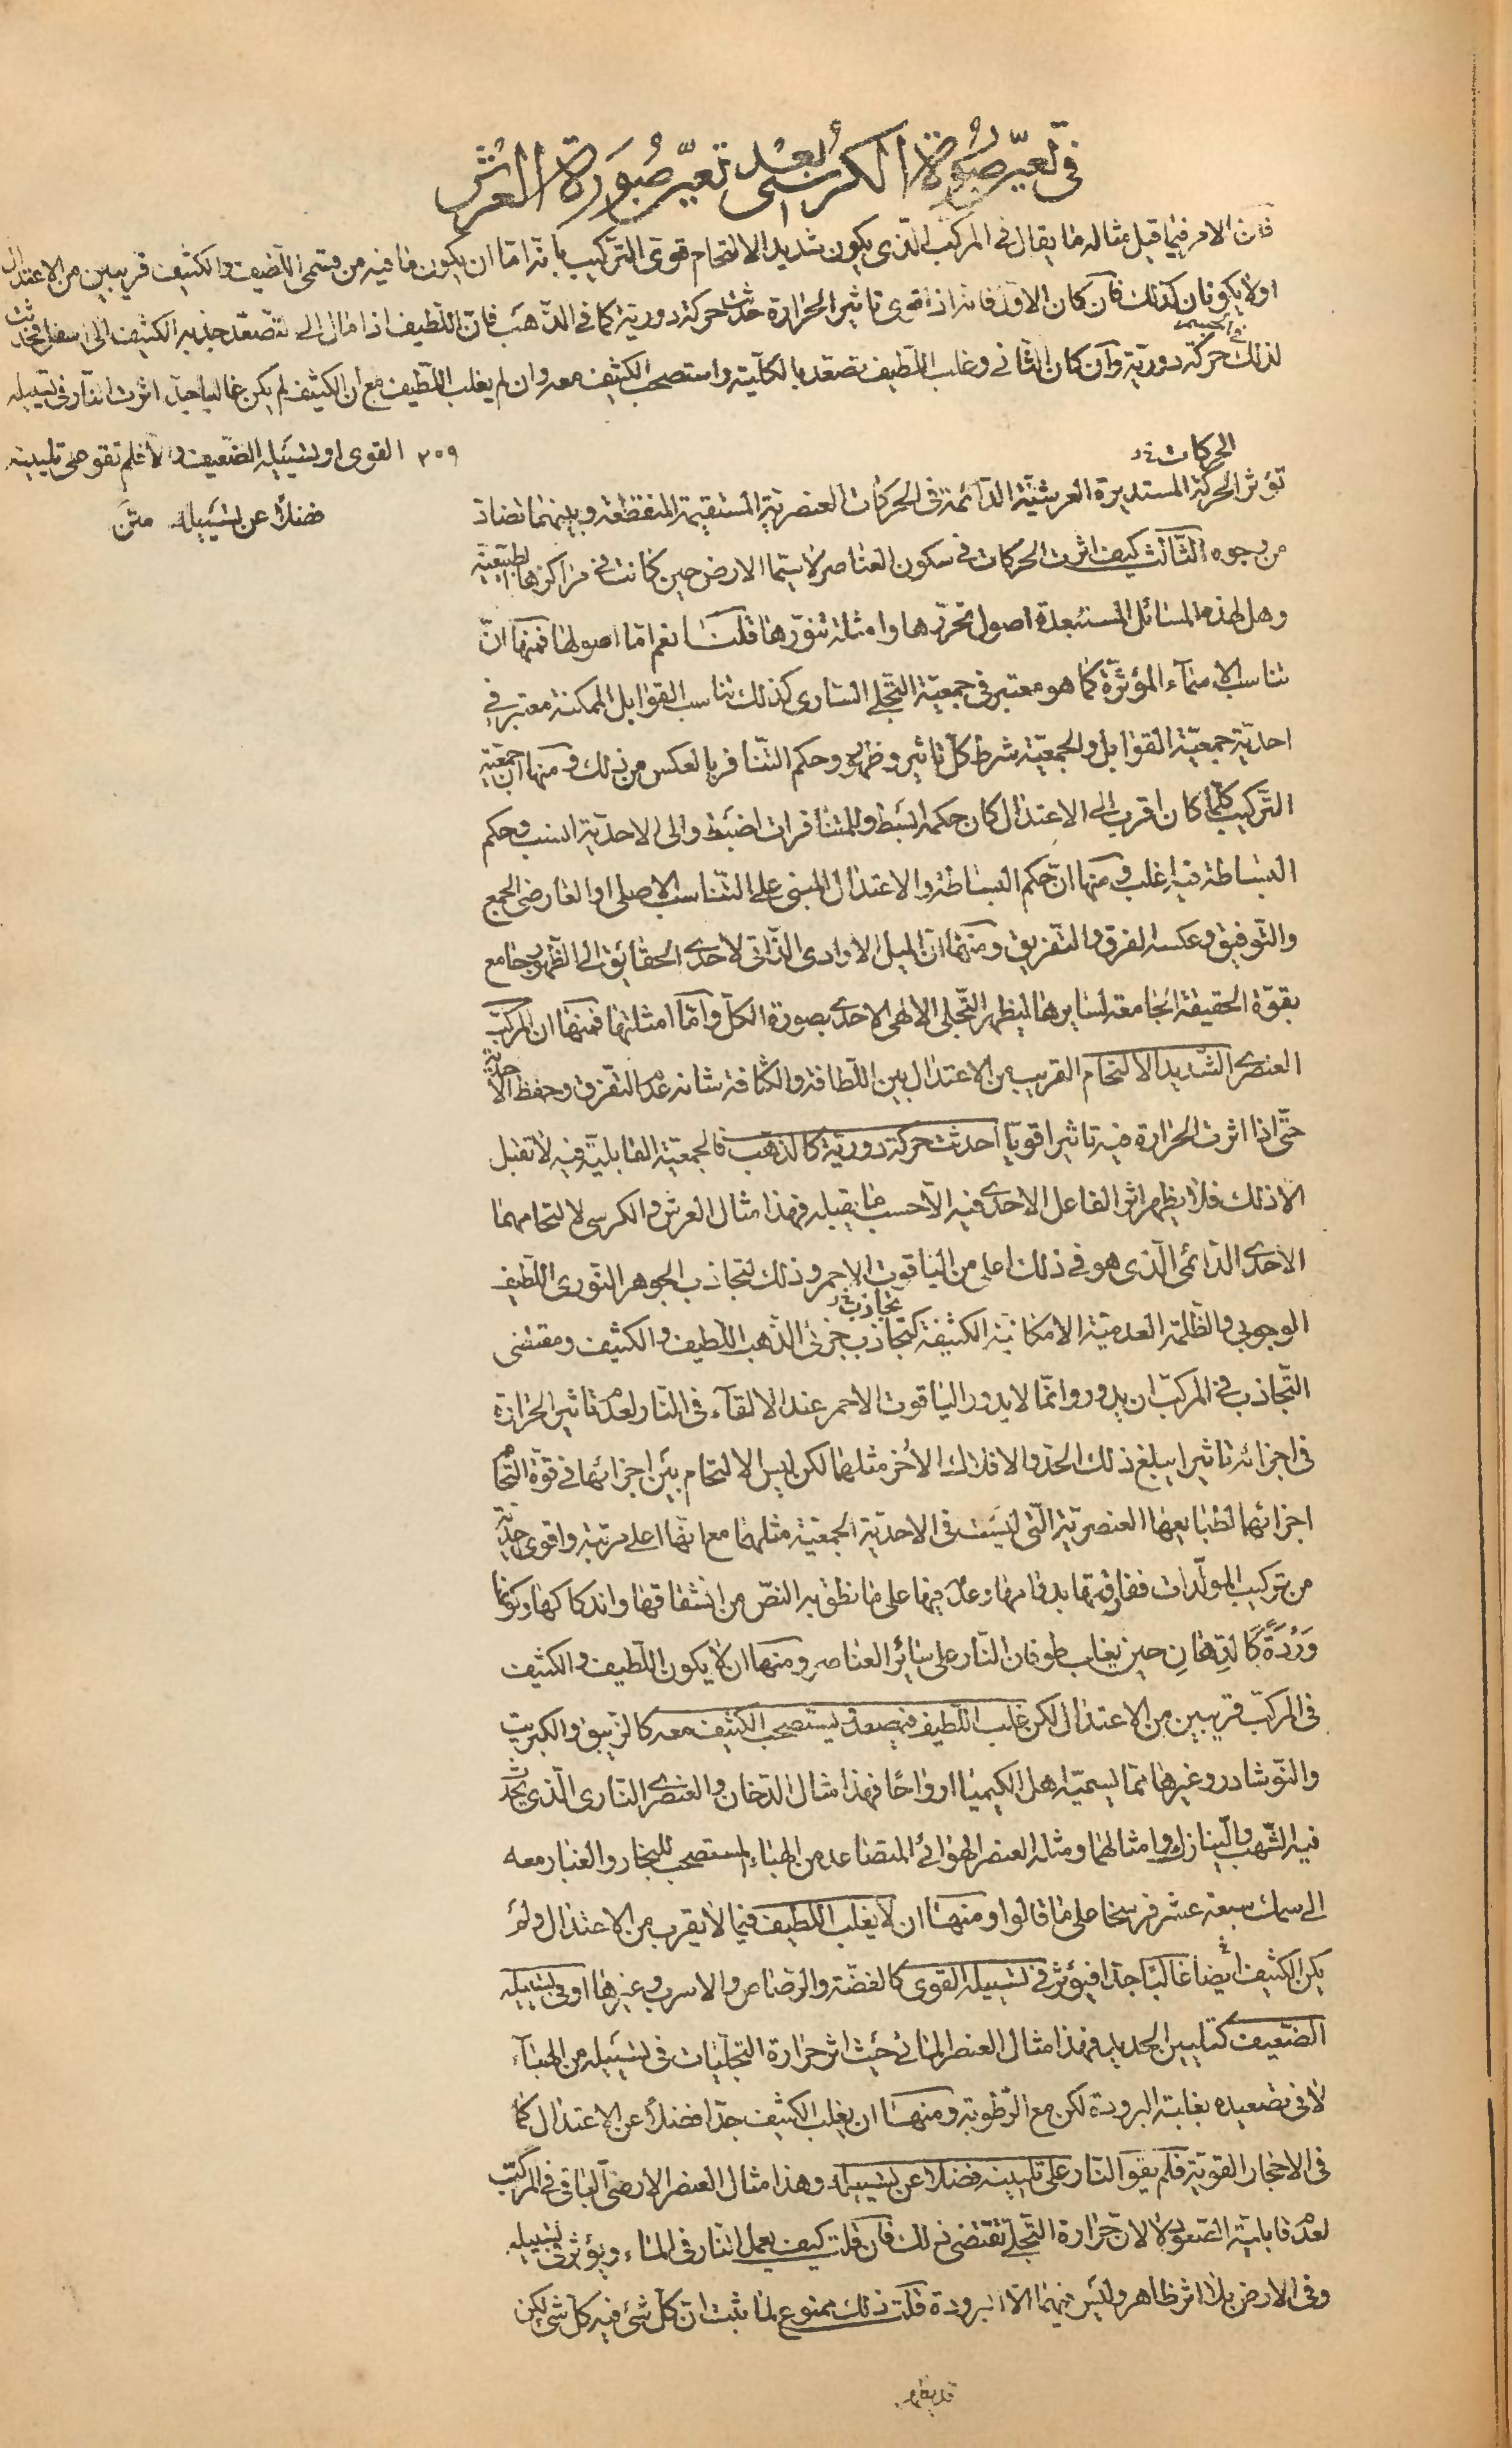 في تعيّن صُورة الكرسى بَعْد تعيّن صُورة العرش
فان الامر فيما قيل مثاله ما يقال فى المركب الذى يكون شديد الالتحام قوى التركيب بانه اما ان يكون ما فيه من قسمى اللّطيف والكثيف قريبين من الاعتدال
اولا يكونان كذلك فان كان الاول فانه اذا قوى تاثير الحرارة حدثت حركة دورية كما فى الذّهب فان اللّطيف اذا مال الى التصعّد جذبه الكثيف الى اسفل فحدث
لذلك حركة دورية وان كان الثانى وغلب اللّطيف تصعّد بالكليّة واستصحب الكثيف معه وان لم يغلب اللّطيف مع ان الكثيف لم يكن غالبا جدّا اثرت النار فى تسييله
القوى او تسييله الضّعيف والا فلم تقو على تليينه ٢٥٩
فضلا عن تسييله متن
الحركات خ
تؤثر الحركة المستديرة العرشيّة الدّائمة فى الحركات العنصريّة المستقيمة المنقطعة وبينهما تضاد
من وجوه الثالث كيف اثرت الحركات فى سكون العناصر لا سيّما الارض حين كانت فى مراكزها الطبيعيّة
وهل لهذه المسائل المستبعدة اصول تحرّرها وامثلة تنوّرها قلت نعم امّا اصولها فمنها انّ
تناسب الاسمآء المؤثرة كما هو معتبر فى جمعيّة التّجلى السّارى كذلك تناسب القوابل الممكنة معتبر فى
احديّة جمعيّة القوابل والجمعيّة شرط كلّ تاثير وظهور وحكم التّنافر بالعكس من ذلك ومنها ان جمعيّة
التّركيب كلّما كان اقرب الى الاعتدال كان حكمه ابسط وللمتنافرات اضبط والى الاحديّة انسب وحكم
البساطة فيه اغلب ومنها انّ حكم البساطة والاعتدال المبنى على التّناسب الاصلى او العارضى الجمع
والتّوفيق وعكسه الفرق والتّفريق ومنها ان الميل الارادى الذّاتى لاحدى الحقائق الى الظّهور جامع
بقوّة الحقيقة الجامعة لسايرها ليظهر التّجلى الالهى الاحدى بصورة الكلّ وامّا امثلتها فمنها ان المركّب
العنصرى الشّديد الالتحام القريب من الاعتدال بين اللّطافة والكثافة شانه عدم التفرّق وحفظ الاحديّة
حتّى اذا اثرت الحرارة فيه تاثيرا قويا احدثت حركة دورية كالذهب فالجمعيّة القابليّة فيه لا تقبل
الا ذلك فلا يظهر اثر الفاعل الاحدى فيه الّا حسب ما يقبله فهذا مثال العرش والكرسى لالتحامهما
الاحدى الدّائمى الّذى هو فى ذلك اعلى من الياقوت الاحمر وذلك لتجاذب الجوهر النّورى اللّطيف
تجاذب خ
الوجوبى والظّلمة العدميّة الامكانيّة الكثيفة كتجاذب جزئى الذّهب اللّطيف والكثيف ومقتضى
التّجاذب فى المركّب ان يدور وانّما لا يدور الياقوت الاحمر عند الالقآء فى النّار لعدم تاثير الحرارة
فى اجزائه تاثيرا يبلغ ذلك الحدّ والافلاك الأخر مثلهما لكن ليس الالتحام بين اجزائها فى قوّة التحام
اجزائهما لطبايعها العنصريّة الّتى ليست فى الاحديّة الجمعيّة مثلهما مع انّها اعلى مرتبة واقوى احديّة
من تركيب المولّدات ففارقتها بدوامها وعدمها على ما نطق به النصّ من انشقاقها واندكاكها وكونها
وَرْدَةً كَالدِّهانِ حين يغلب طوفان النّار على سائر العناصر ومنها ان لا يكون اللّطيف والكثيف
فى المركّب قريبين من الاعتدال لكن غلب اللّطيف فيصعد ليستصحب الكثيف معه كالزيبق والكبريت
والنّوشادر وغيرها ممّا يسميّه اهل الكيميا ارواحًا فهذا مثال الدّخان والعنصر النّارى الّذى يحدث
فيه الشّهب والنّيازك وامثالهما ومثله العنصر الهوائى المتصاعد من الهباء المستصحب للبخار والغبار معه
الى سمك سبعة عشر فرسخا على ما قالوا ومنها ان لا يغلب اللّطيف فيما لا يقرب من الاعتدال ولم
يكن الكثيف ايضا غالبًا جدّا فيؤثر فى تسييله القوى كالفضّة والرّصاص والاسرب وغيرها او فى تسييله
الضّعيف كتليين الحديد فهذا مثال العنصر المائى حيث اثر حرارة التجلّيات فى تسييله من الهبآء
لا فى تصعيده بغلبة البرودة لكن مع الرّطوبة ومنها ان يغلب الكثيف جدّا فضلا عن الاعتدال كما
فى الاحجار القويّة فلم يقو النّار على تليينه فضلا عن تسييله وهذا مثال العنصر الارضى الباقى فى المركّب
لعدم قابليّة الصّعود لا لان حرارة التّجلى تقتضى ذلك فان قلت كيف يعمل النّار فى الماء ويؤثر فى تسييله
وفى الارض بلا اثر ظاهر وليس فيهما الّا البرودة قلت ذلك ممنوع لما ثبت انّ كلّ شئ فيه كلّ شئ لكن
قد يظهر